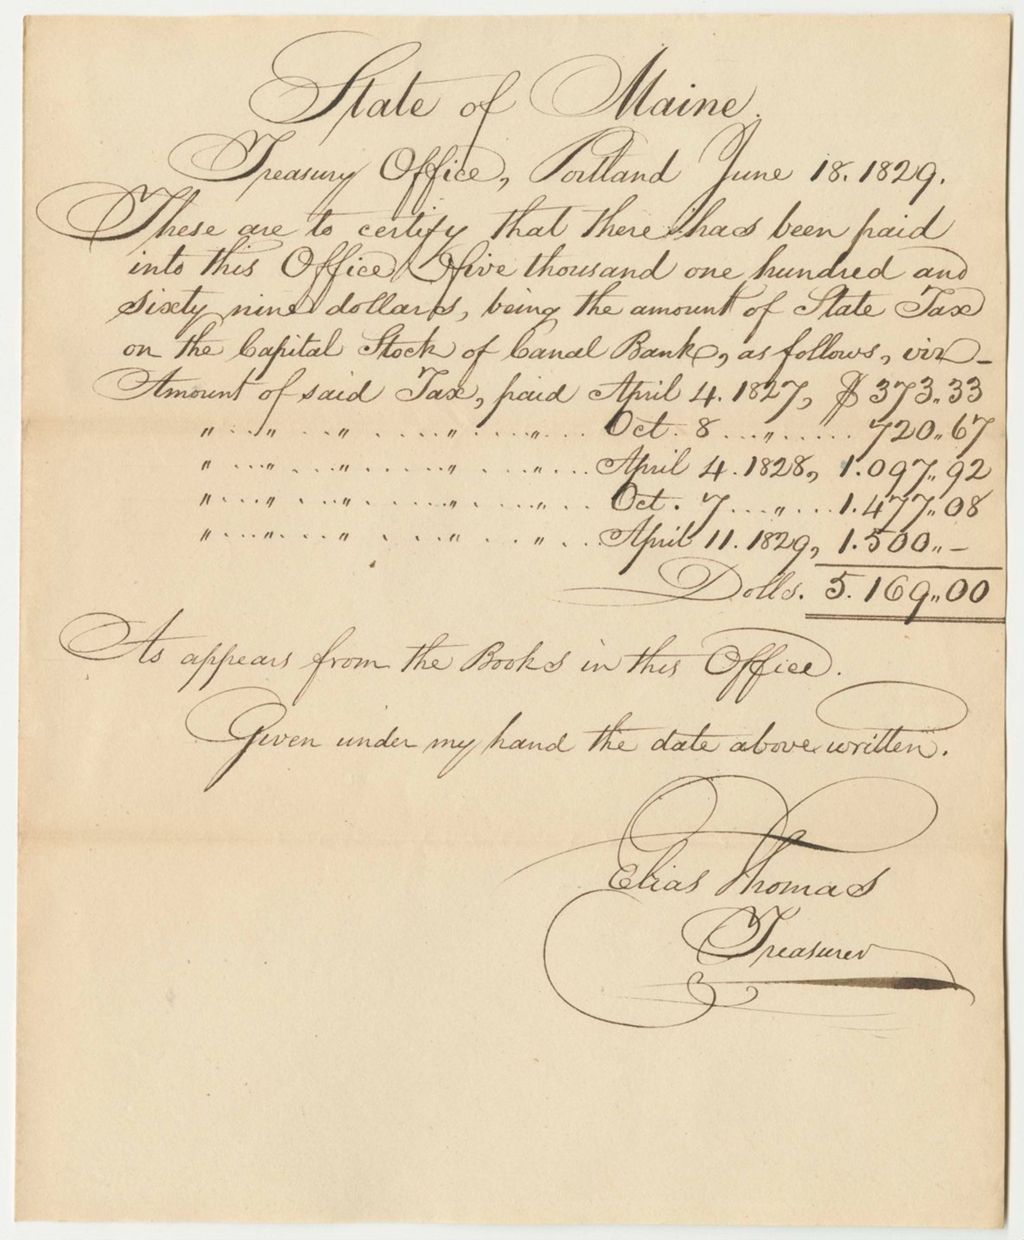 State of Maine.
Treasury Office, Portland June 18. 1829.
These are to certify that there has been paid
into this Office, Five thousand one hundred and
sixty nine dollars, being the amount of State Tax
on the Capital Stock of Canal Bank, as follows, viz–
Amount of said Tax, paid April 4. 1827, $ 373.,33
" ... " ... " .... " ...... " ... Oct. 8 ... " ..... 720.,67
" ... " ... " .... " ...... " ... April 4. 1828, 1.097.,92
" ... " ... " .... " ...... " ... Oct. 7 ... " ... 1.477.,08
" ... " ... " .... " ...... " ... April 11. 1829, 1.500.,–
Dolls. 5.169.,00
As appears from the Books in this Office.
Given under my hand the date above written.
Elias Thomas
Treasurer